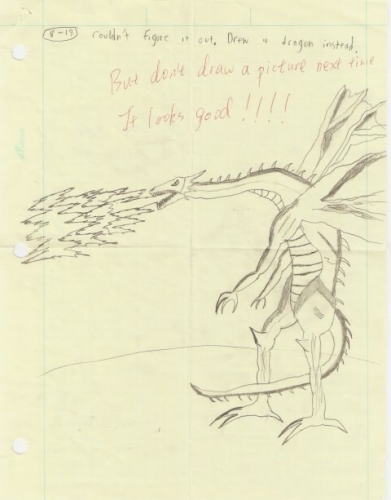 8-19 couldn't figure it out. Drew a dragon instead.
But don't draw a picture next time
It looks good!!!!